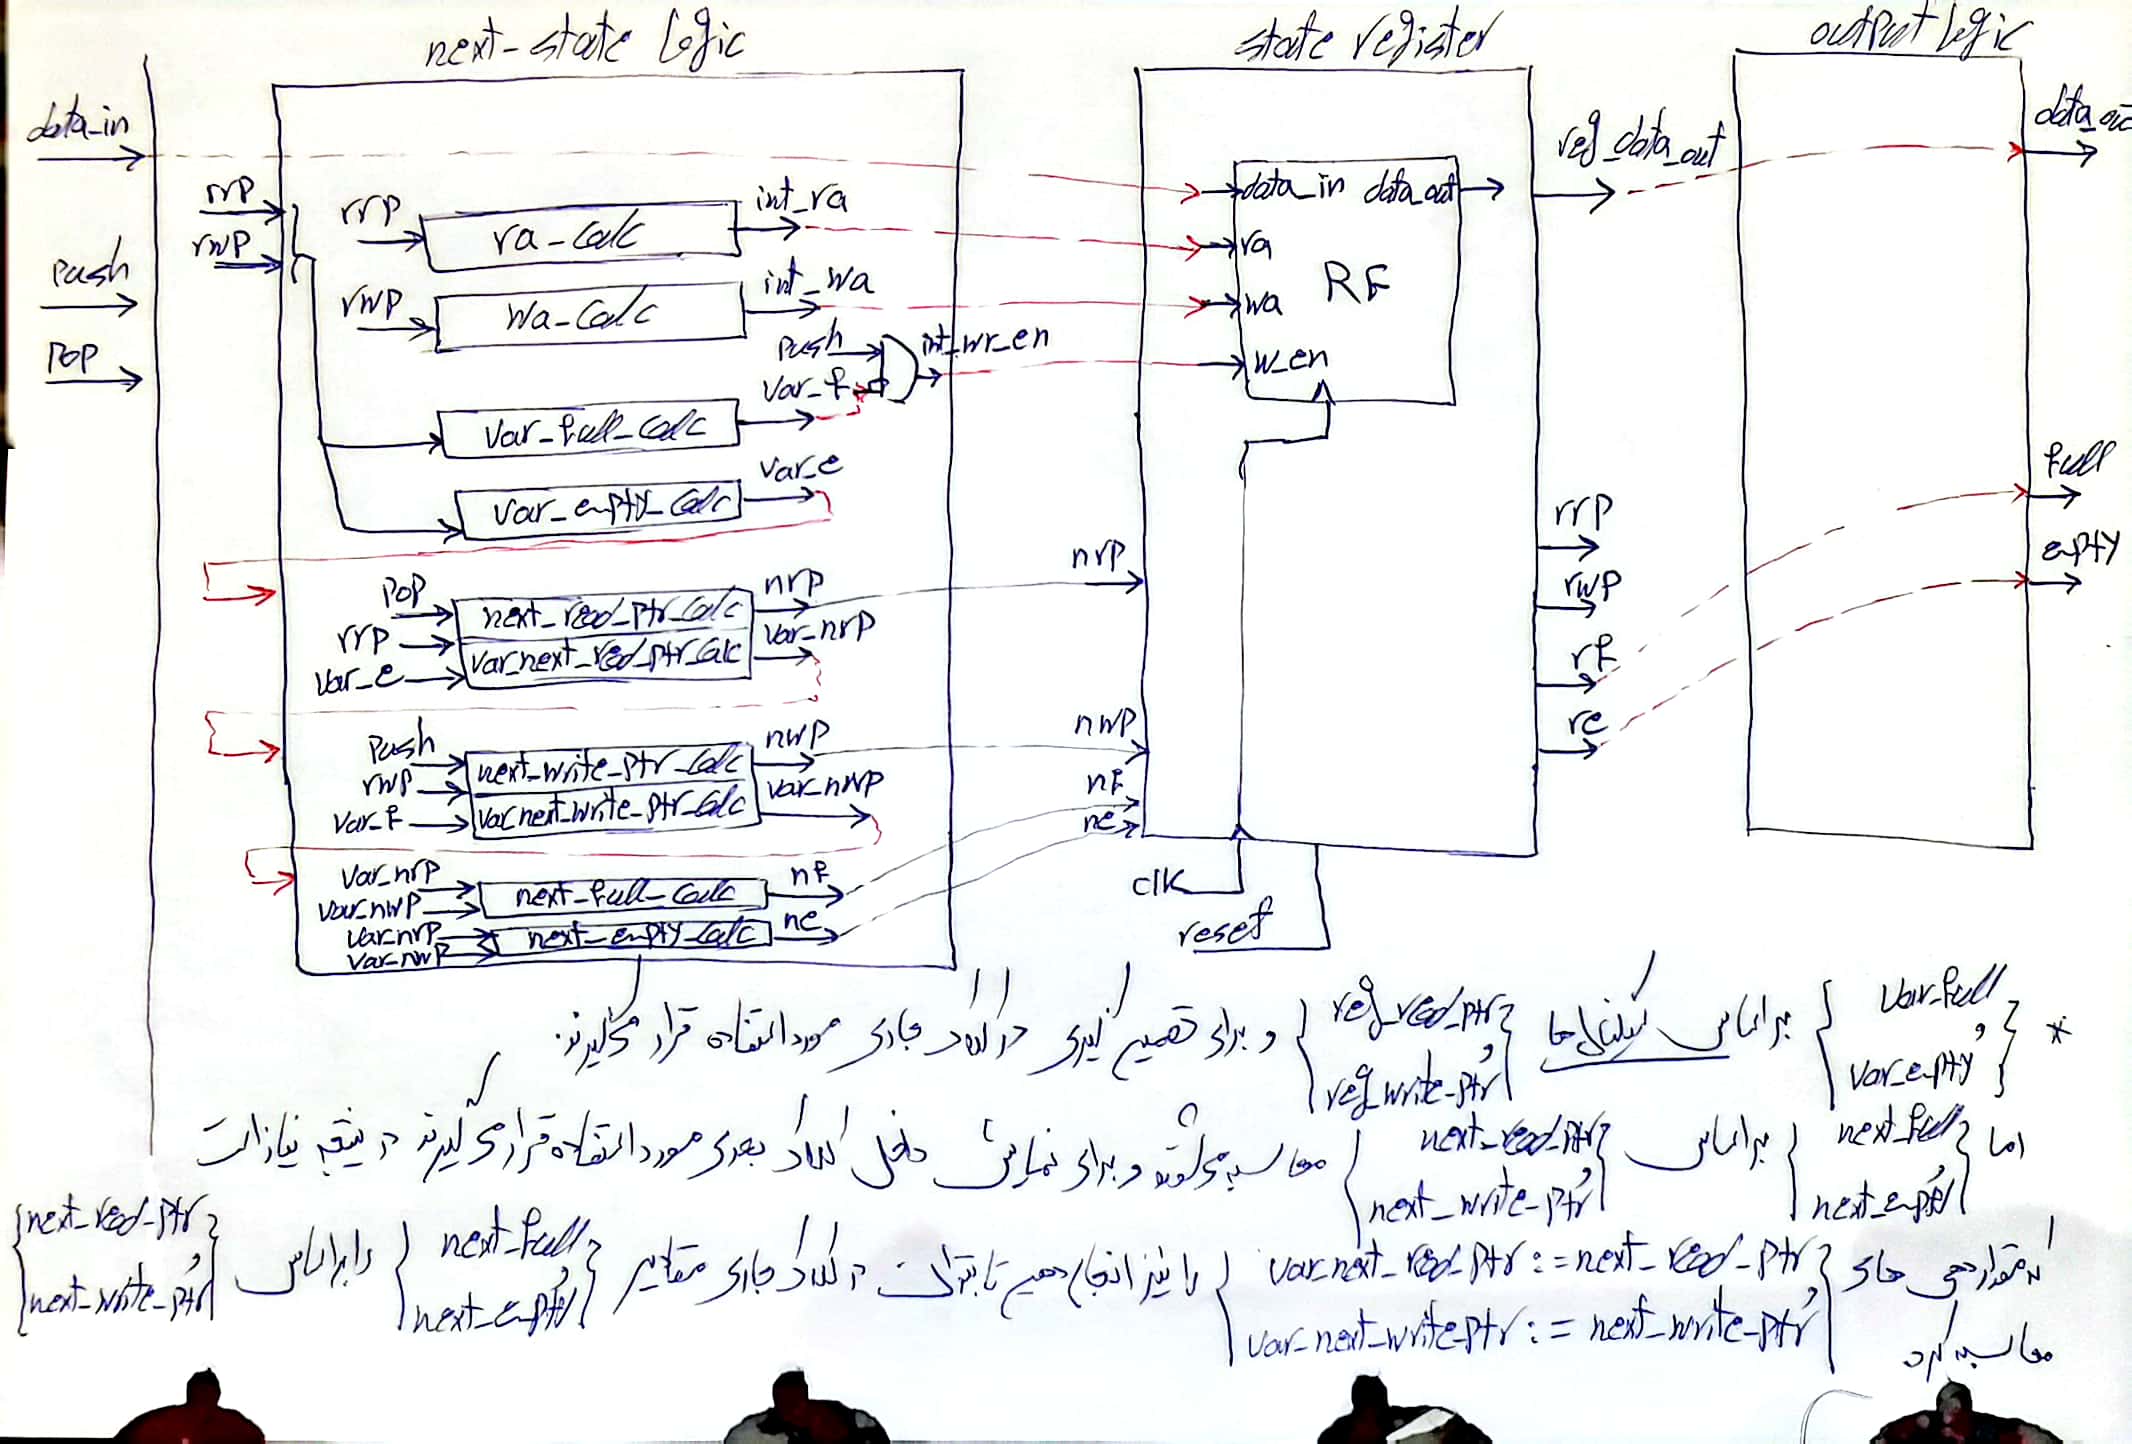 next-state logic
state register
output logic
data_in
push
pop
rrp
rwp
rrp
ra-calc
int_ra
rwp
wa-calc
int_wa
push
var_f
int_wr_en
var_full_calc
var_empty_calc
var_e
pop
rrp
var_e
next_read_ptr_calc
var_next_read_ptr_calc
nrp
var_nrp
push
rwp
var_f
next_write_ptr_calc
var_next_write_ptr_calc
nwp
var_nwp
var_nrp
var_nwp
next_full_calc
nf
var_nrp
var_nwp
next_empty_calc
ne
data_in data_out
ra
RF
wa
w_en
nrp
nwp
nf
ne
clk
reset
reg_data_out
rrp
rwp
rf
re
data_out
full
empty
* {var_full و var_empty} براساس سیگنال‌ها {reg_read_ptr و reg_write_ptr} و برای تصمیم گیری در کلاک جاری مورد استفاده قرار می‌گیرند.
اما {next_full و next_empty} براساس {next_read_ptr و next_write_ptr} محاسبه می‌شوند و برای نمایش داخل کلاک بعدی مورد استفاده قرار می‌گیرند در نتیجه نیاز است
که مقداردهی های {var_next_read_ptr := next_read_ptr و var_next_write_ptr := next_write_ptr} را نیز انجام دهیم تا بتوان در کلاک جاری مقادیر {next_full و next_empty} را براساس {next_read_ptr و next_write_ptr}
محاسبه کرد